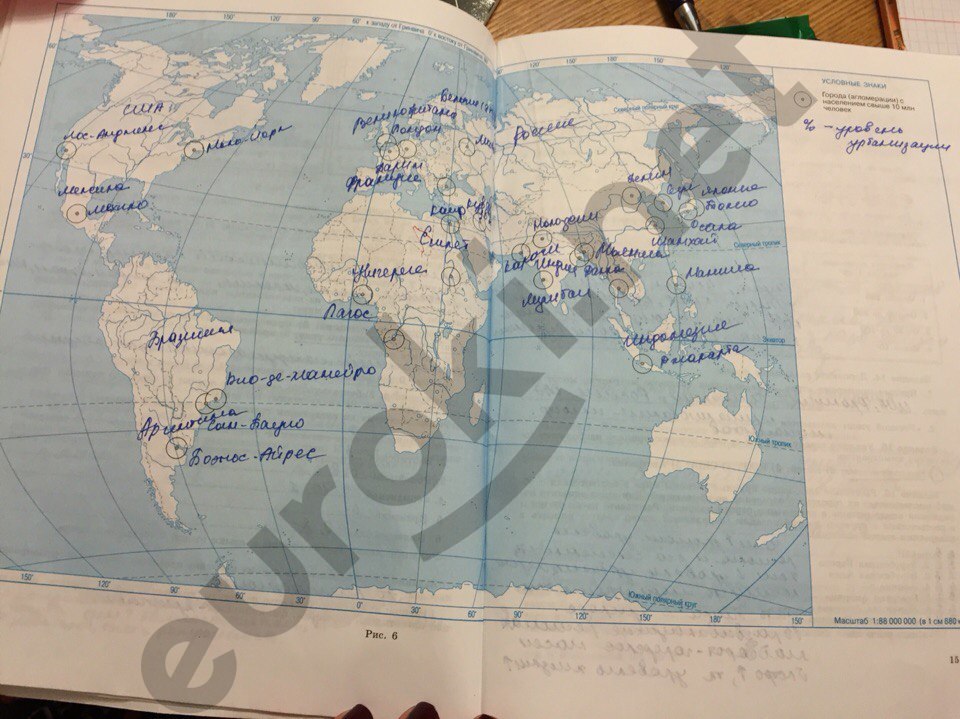 180°
150°
120°
90°
60°
к западу от Гринвича 0° к востоку от Гринвича
60°
90°
120°
150°
180°
150°
120°
УСЛОВНЫЕ ЗНАКИ
Города (агломерации) с
населением свыше 10 млн
человек
% - уровень
урбанизации
Северный полярный круг
60°
30°
США
Лос-Анджелес
Нью-Йорк
Мексика
Мехико
Великобритания
Лондон
Париж
Франция
Россия
Пекин
Сеул
Япония
Токио
Осака
Шанхай
Северный тропик
Каир
Египет
Карачи
Индия
Дакка
Мьянма
Мумбаи
Манила
Нигерия
Лагос
Экватор
Индонезия
Джакарта
Бразилия
Рио-де-Жанейро
Аргентина
Сан-Пауло
Буэнос-Айрес
Южный тропик
Южный полярный круг
150°
120°
90°
60°
30°
0°
30°
60°
90°
120°
150°
180°
150°
Масштаб 1:88 000 000 (в 1 см 880
Рис. 6
15
euroki.net